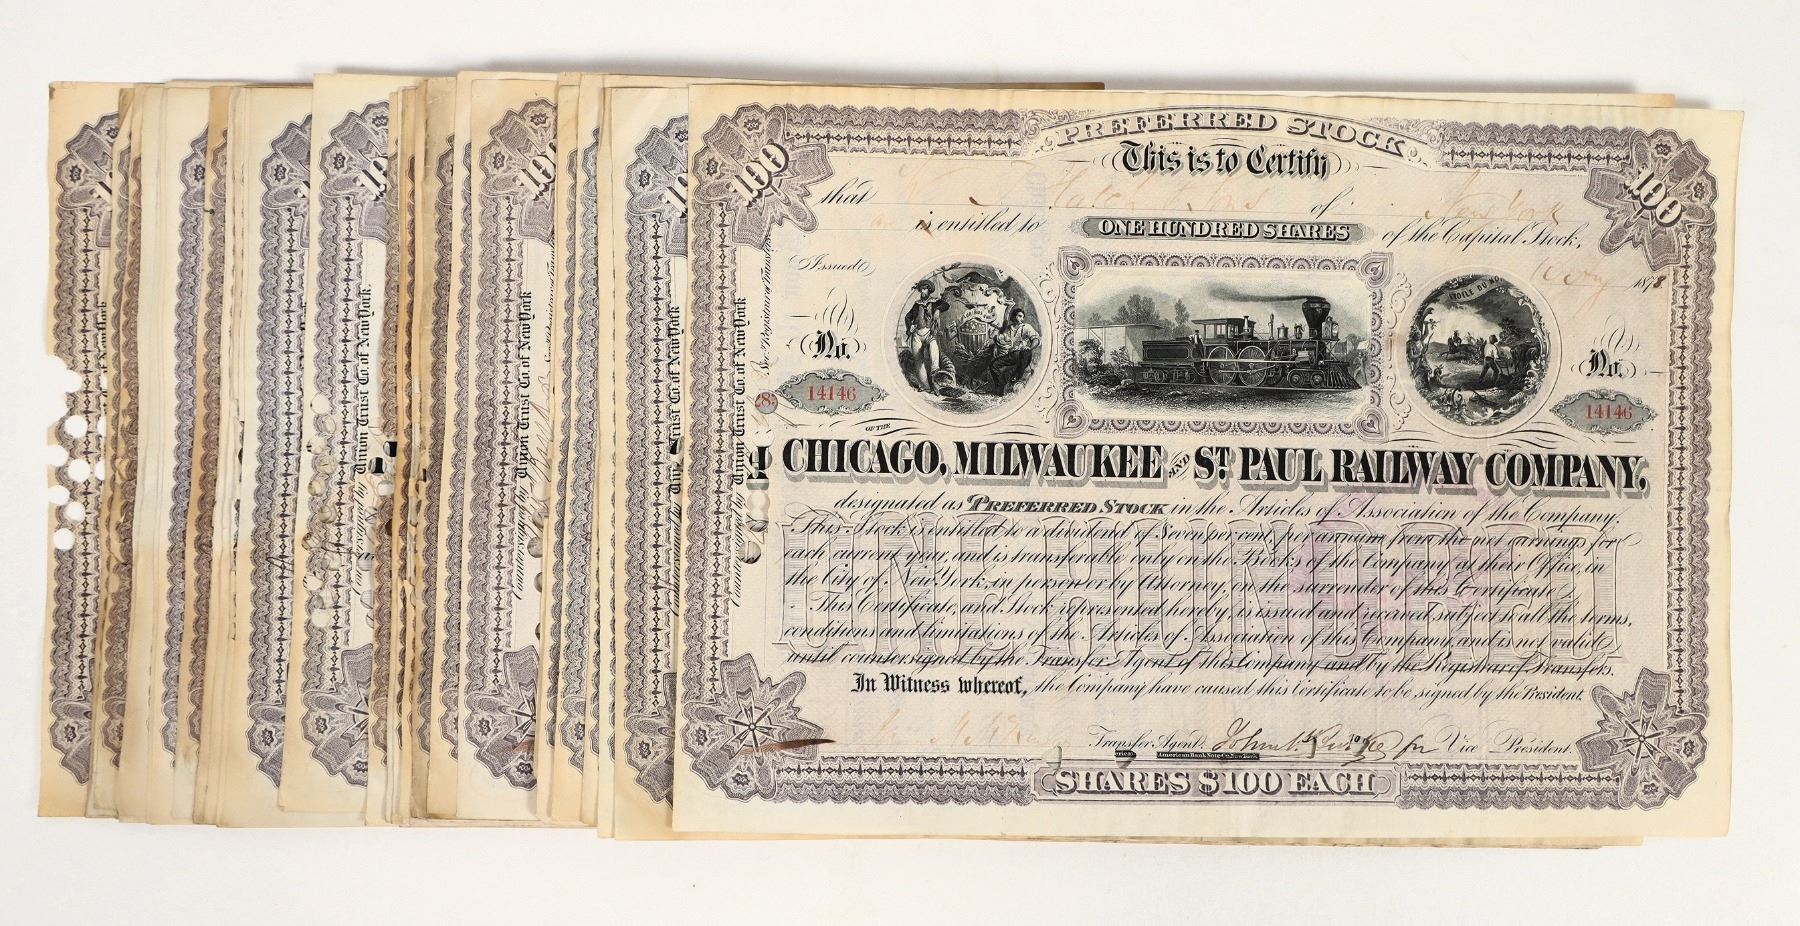 PREFERRED STOCK
This is to Certify
100
100
that Hatch & Sons of New York
is entitled to ONE HUNDRED SHARES of the Capital Stock,
Issued 1878
ETOILE DU N
No. No.
14146 14146
OF THE
CHICAGO, MILWAUKEE AND ST. PAUL RAILWAY COMPANY,
designated as PREFERRED STOCK in the Articles of Association of the Company.
This Stock is entitled to a dividend of Seven per cent, per annum from the net earnings for
each current year, and is transferable only on the Books of the Company at their Office, in
the City of New York, in person or by Attorney, on the surrender of this Certificate.
This Certificate, and Stock represented hereby, is issued and received subject to all the terms,
conditions and limitations of the Articles of Association of this Company, and is not valid
until countersigned by the Transfer Agent of this Company and by the Registrar of Transfers.
In Witness whereof, the Company have caused this Certificate to be signed by the President.
Transfer Agent. Vice President.
American Bank Note Co. New York
SHARES $100 EACH
Countersigned by Union Trust Co. of New York
100
Union Trust Co. of New York
100
Countersigned by Union Trust Co. of New York
100
Countersigned by Union Trust Co. of New York